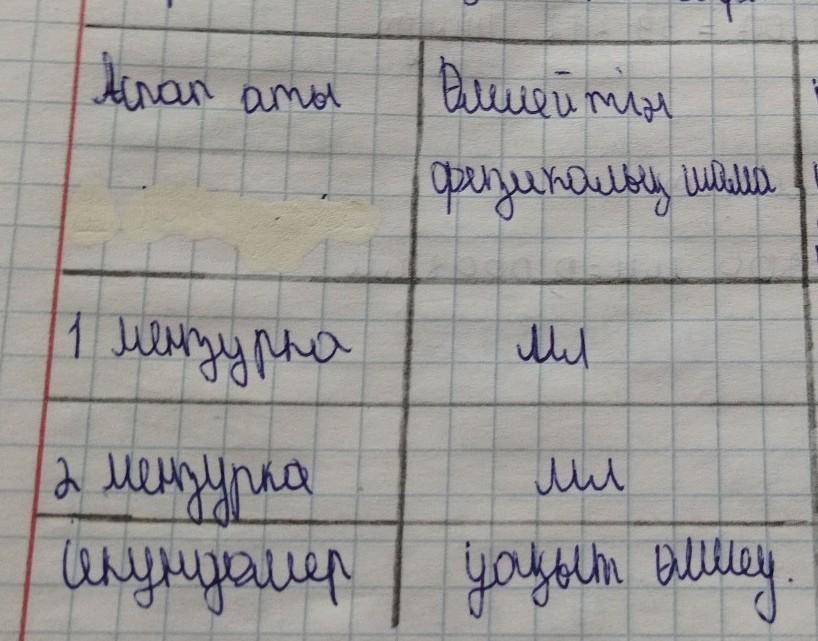 Аспап аты
Өлшейтін
физикалық шама
1 мензурка
мл
2 мензурка
мл
Секундомер
уақыт өлшеу.